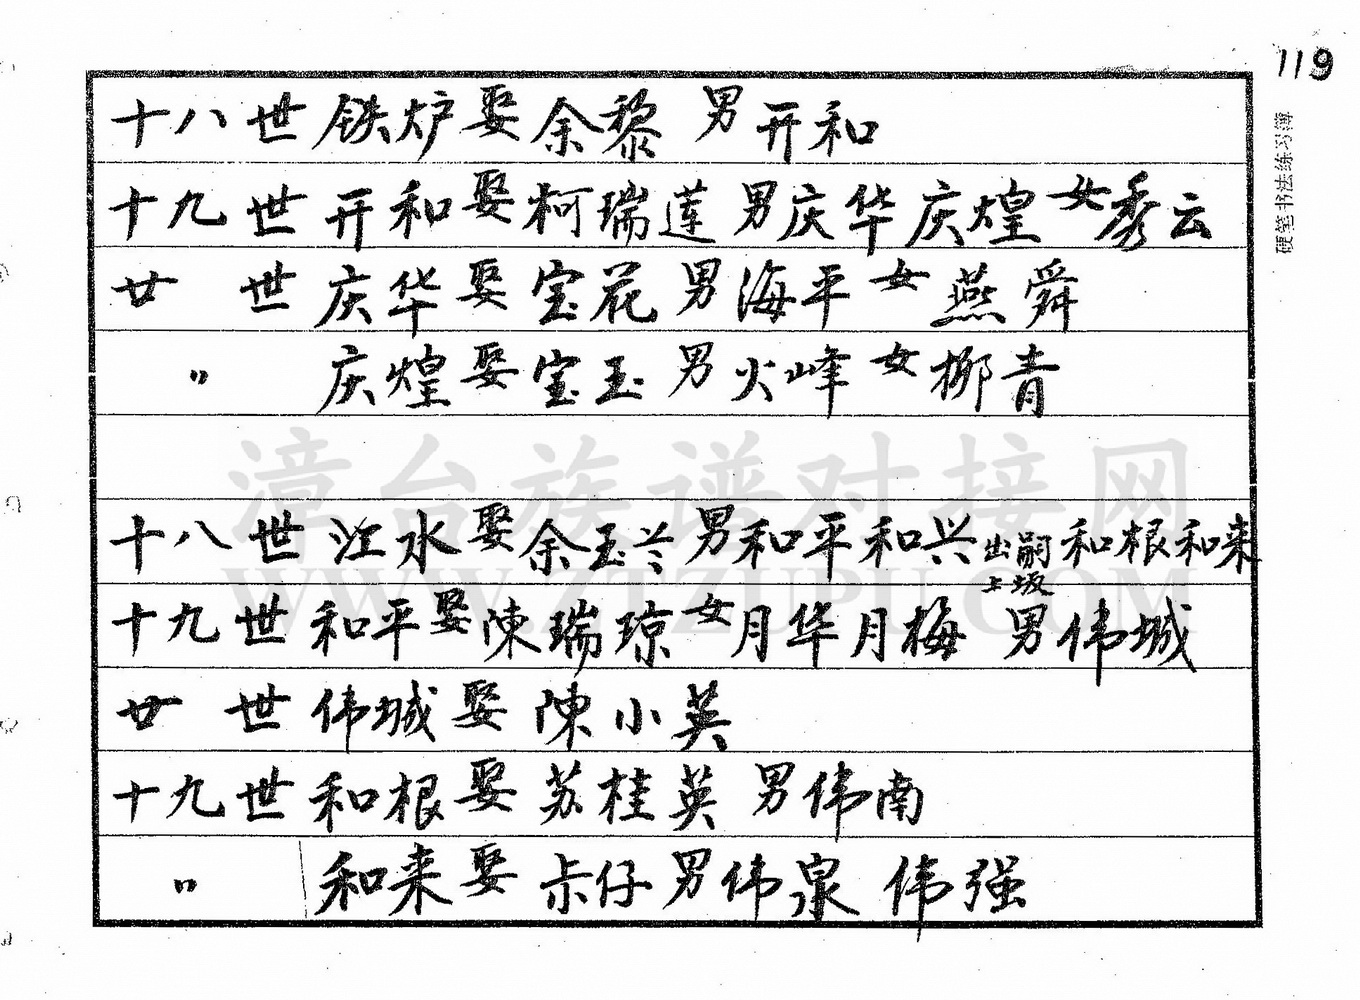 119
硬笔书法练习簿
十八世 铁炉 娶 余黎 男 开和
十九世 开和 娶 柯瑞莲 男 庆华 庆煌 女 秀云
廿世 庆华 娶 宝花 男 海平 女 燕舜
〃 庆煌 娶 宝玉 男 火峰 女 柳青
漳台族谱对接网
WWW.ZTZUPU.COM
十八世 江水 娶 余玉兰 男 和平 和兴 出嗣上坂 和根 和来
十九世 和平 娶 陳瑞琼 女 月华 月梅 男 伟城
廿世 伟城 娶 陳小英
十九世 和根 娶 苏桂英 男 伟南
〃 和来 娶 仔 男 伟泉 伟强